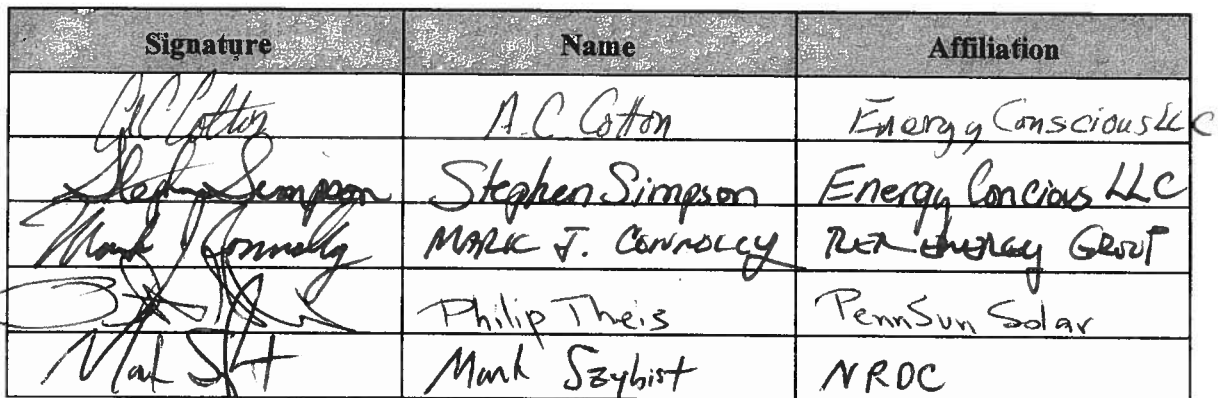 Signature Name Affiliation
A C Cotton A.C. Cotton Energy Conscious LLC
Stephen Simpson Stephen Simpson Energy Concious LLC
Mark J Connolly MARK J. CONNOLLY RER ENERGY GROUP
Philip Theis PennSun Solar
Mark Szybist NRDC